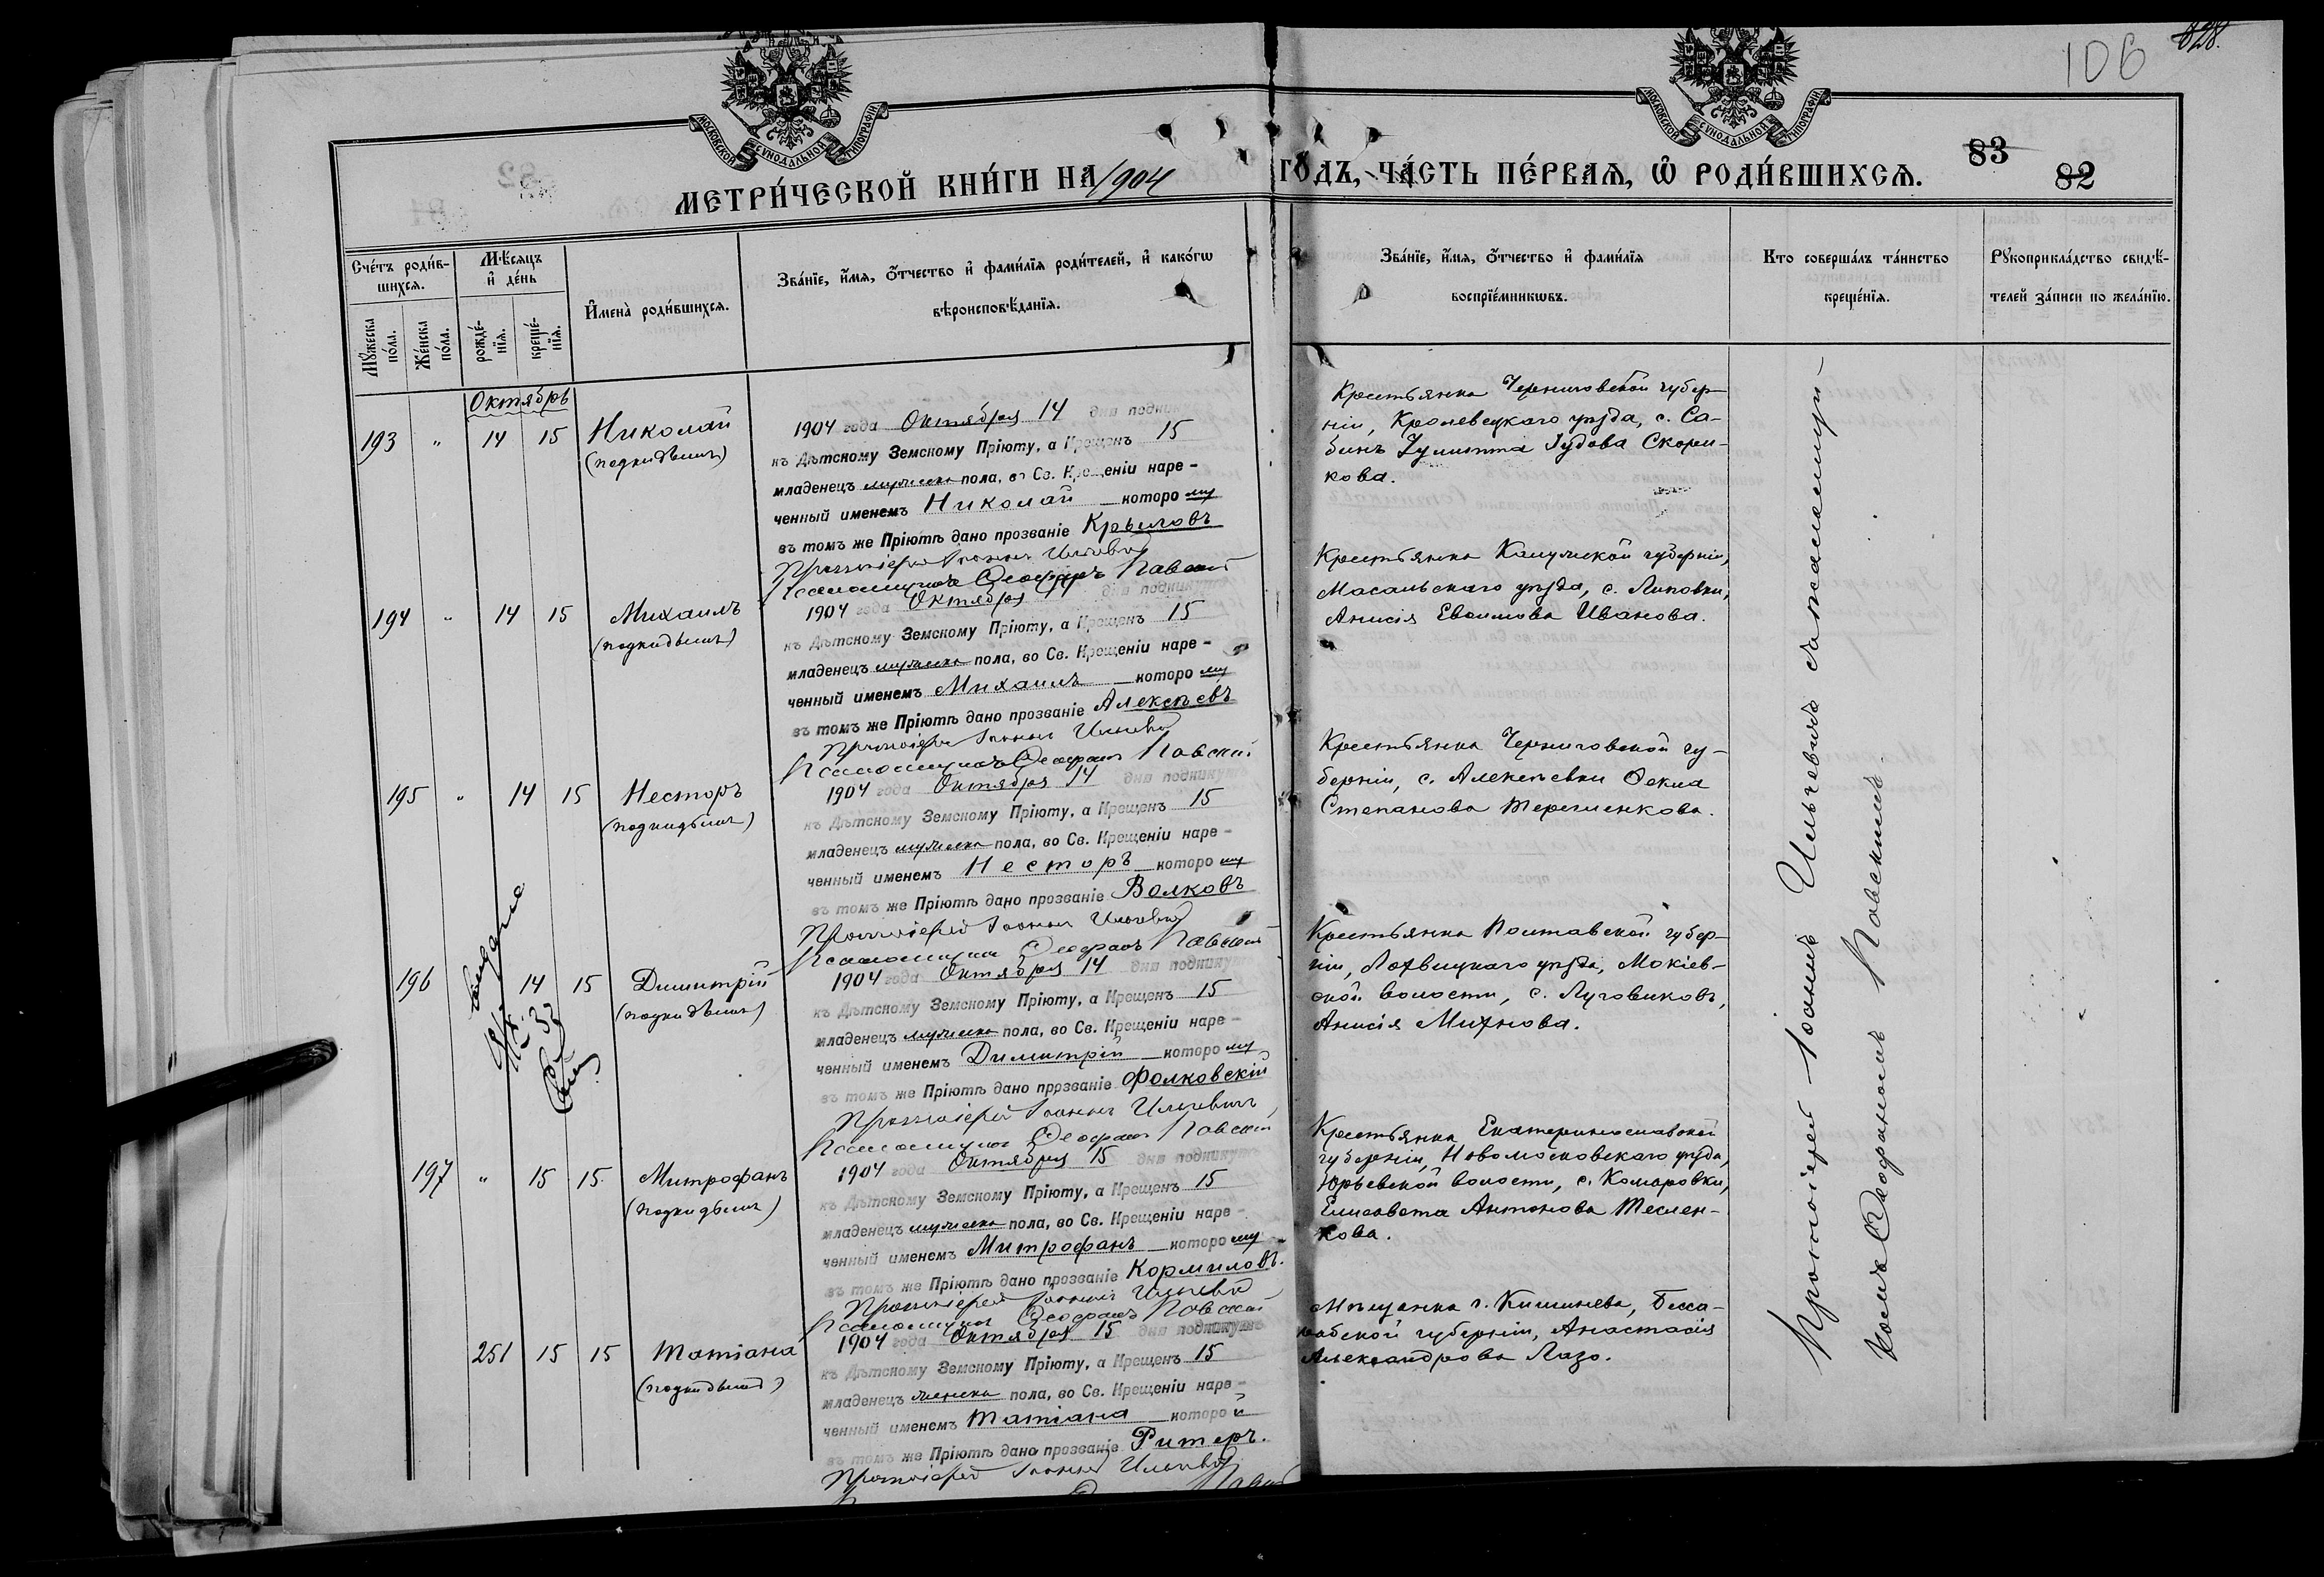 828.
106
МОСКОВСКОЙ СѴНОДАЛЬНОЙ ТИПОГРАФІИ
МОСКОВСКОЙ СѴНОДАЛЬНОЙ ТИПОГРАФІИ
83
82
МЕТРИ́ЧЕСКОЙ КНИ́ГИ НА 1904 ГО́ДЪ, ЧА́СТЬ ПЕ́РВАѦ, Ѡ҆ РОДИ́ВШИХСѦ.
Сче́тъ роди́в-
шихсѧ.
Мꙋ́жеска по́ла.
Же́нска по́ла.
Мѣ́сѧцъ и҆ де́нь
рожде́-
нїѧ.
креще́-
нїѧ.
И҆мена̀ роди́вшихсѧ.
Зва́нїе, и҆́мѧ, ѻ҆́тчество и҆ фами́лїѧ роди́телей, и҆ како́гѡ
вѣроисповѣ́данїѧ.
Зва́нїе, и҆́мѧ, ѻ҆́тчество и҆ фами́лїѧ
воспрїе́мникѡвъ.
Кто соверша́лъ та́инство
креще́нїѧ.
Рꙋкоприкла́дство свидѣ́-
телей за́писи по жела́нїю.
Октябрь
193 " 14 15 Николай
(подкидышъ)
1904 года Октября 14 дня подкину
къ Дѣтскому Земскому Пріюту, а Крещенъ 15
младенецъ мужеска пола, во Св. Крещеніи наре-
ченный именемъ Николай которо му
въ томъ же Пріютѣ дано прозваніе Крыловъ
Протоіерей Іоаннъ Ильевичъ
Псаломщикъ Ѳеофанъ Павскій
Крестьянка Черниговской губер-
ніи, Кролевецкаго уѣзда, с. Са-
бинъ Іудова Скори-
кова.
194 " 14 15 Михаилъ
(подкидышъ)
1904 года Октября 14 дня подкинут
къ Дѣтскому Земскому Пріюту, а Крещенъ 15
младенецъ мужеска пола, во Св. Крещеніи наре-
ченный именемъ Михаилъ которо му
въ томъ же Пріютѣ дано прозваніе Алексѣевъ
Протоіерей Іоаннъ Ильевичъ
Псаломщикъ Ѳеофанъ Павскій
Крестьянка Калужской губерніи,
Масальскаго уѣзда, с. Липовки,
Анисія Евѳимова Иванова.
195 " 14 15 Несторъ
(подкидышъ)
1904 года Октября 14 дня подкинутъ
къ Дѣтскому Земскому Пріюту, а Крещенъ 15
младенецъ мужеска пола, во Св. Крещеніи наре-
ченный именемъ Несторъ которо му
въ томъ же Пріютѣ дано прозваніе Волковъ
Протоіерей Іоаннъ Ильевичъ
Псаломщикъ Ѳеофанъ Павскій
Крестьянка Черниговской гу-
берніи, с. Алексѣевки Ѳекла
Степанова Терещенкова.
196 14 15 Димитрій
(подкидышъ)
1904 года Октября 14 дня подкинут
къ Дѣтскому Земскому Пріюту, а Крещенъ 15
младенецъ мужеска пола, во Св. Крещеніи наре-
ченный именемъ Димитрій которо му
въ томъ же Пріютѣ дано прозваніе Фолковскій
Протоіерей Іоаннъ Ильевичъ
Псаломщикъ Ѳеофанъ Павскій
Крестьянка Полтавской губер-
ніи, Лохвицкаго уѣзда, Мокіев-
ской волости, с. Луговиковъ,
Анисія Михнова.
197 " 15 15 Митрофанъ
(подкидышъ)
1904 года Октября 15 дня подкинутъ
къ Дѣтскому Земскому Пріюту, а Крещенъ 15
младенецъ мужеска пола, во Св. Крещеніи наре-
ченный именемъ Митрофанъ которо му
въ томъ же Пріютѣ дано прозваніе Кормиловъ.
Протоіерей Іоаннъ Ильевичъ
Псаломщикъ Ѳеофанъ Павскій
Крестьянка Екатеринославской
губерніи, Новомосковскаго уѣзда,
Юрьевской волости, с. Комаровки,
Елисавета Антонова Теслен-
кова.
251 15 15 Татіана
(подкидышъ)
1904 года Октября 15 дня подкинутъ
къ Дѣтскому Земскому Пріюту, а Крещенъ 15
младенецъ женска пола, во Св. Крещеніи наре-
ченный именемъ Татіана которо й
въ томъ же Пріютѣ дано прозваніе Ритеръ.
Протоіерей Іоаннъ Ильевичъ
Мѣщанка г. Кишинева, Бесса-
рабской губерніи, Анастасія
Александрова Лазо.
Протоіерей Іоаннъ Ильевичъ съ псаломщи-
комъ Ѳеофаномъ Павскимъ.